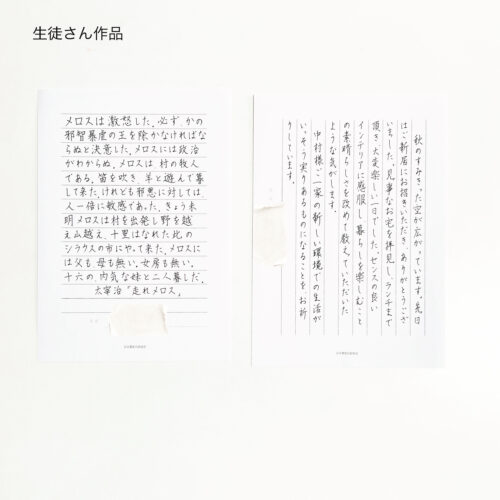 生徒さん作品
メロスは激怒した。必ず かの
邪智暴虐の王を除かなければな
らぬと決意した。メロスには政治
がわからぬ。メロスは 村の牧人
である。笛を吹き 羊と遊んで暮
して来た。けれども邪悪に対しては、
人一倍に敏感であった。きょう未
明メロスは村を出発し 野を越
え山越え、十里はなれた此の
シラクスの市にやって来た。メロスに
は父も 母も無い。女房も無い。
十六の 内気な妹と二人暮しだ。
太宰治 『走れメロス』
秋のすみきった空が広がっています。先日
はご新居にお招きいただき、ありがとうござ
いました。見事なお宅を拝見し、ランチまで
頂き、大変楽しい一日でした。センスの良い
インテリアに感服し、暮らしを楽しむこと
の素晴らしさを改めて教えていただいた
ような気がします。
中村様ご一家の新しい環境での生活が
いっそう実りあるものになることを お祈
りしています。